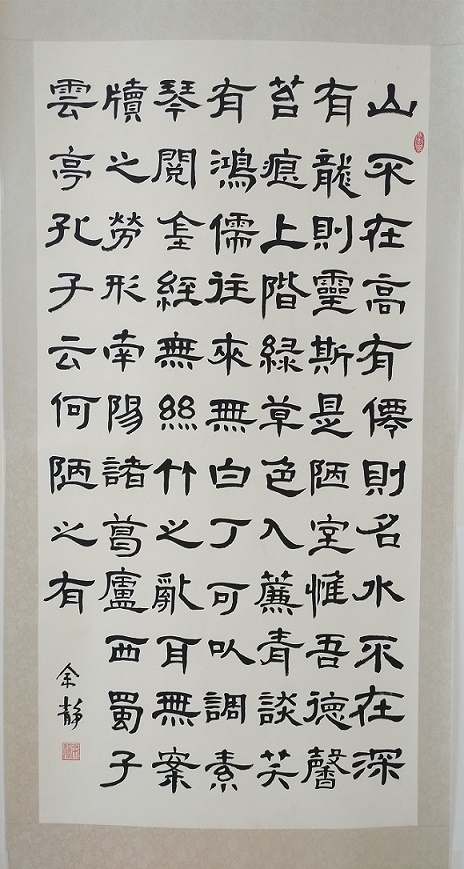 山不在高有僊則名水不在深
有龍則靈斯是陋室惟吾德馨
苔痕上階緑草色入簾青談笑
有鴻儒往來無白丁可以調素
琴閱金經無絲竹之亂耳無案
牘之勞形南陽諸葛廬西蜀子
雲亭孔子云何陋之有
余靜